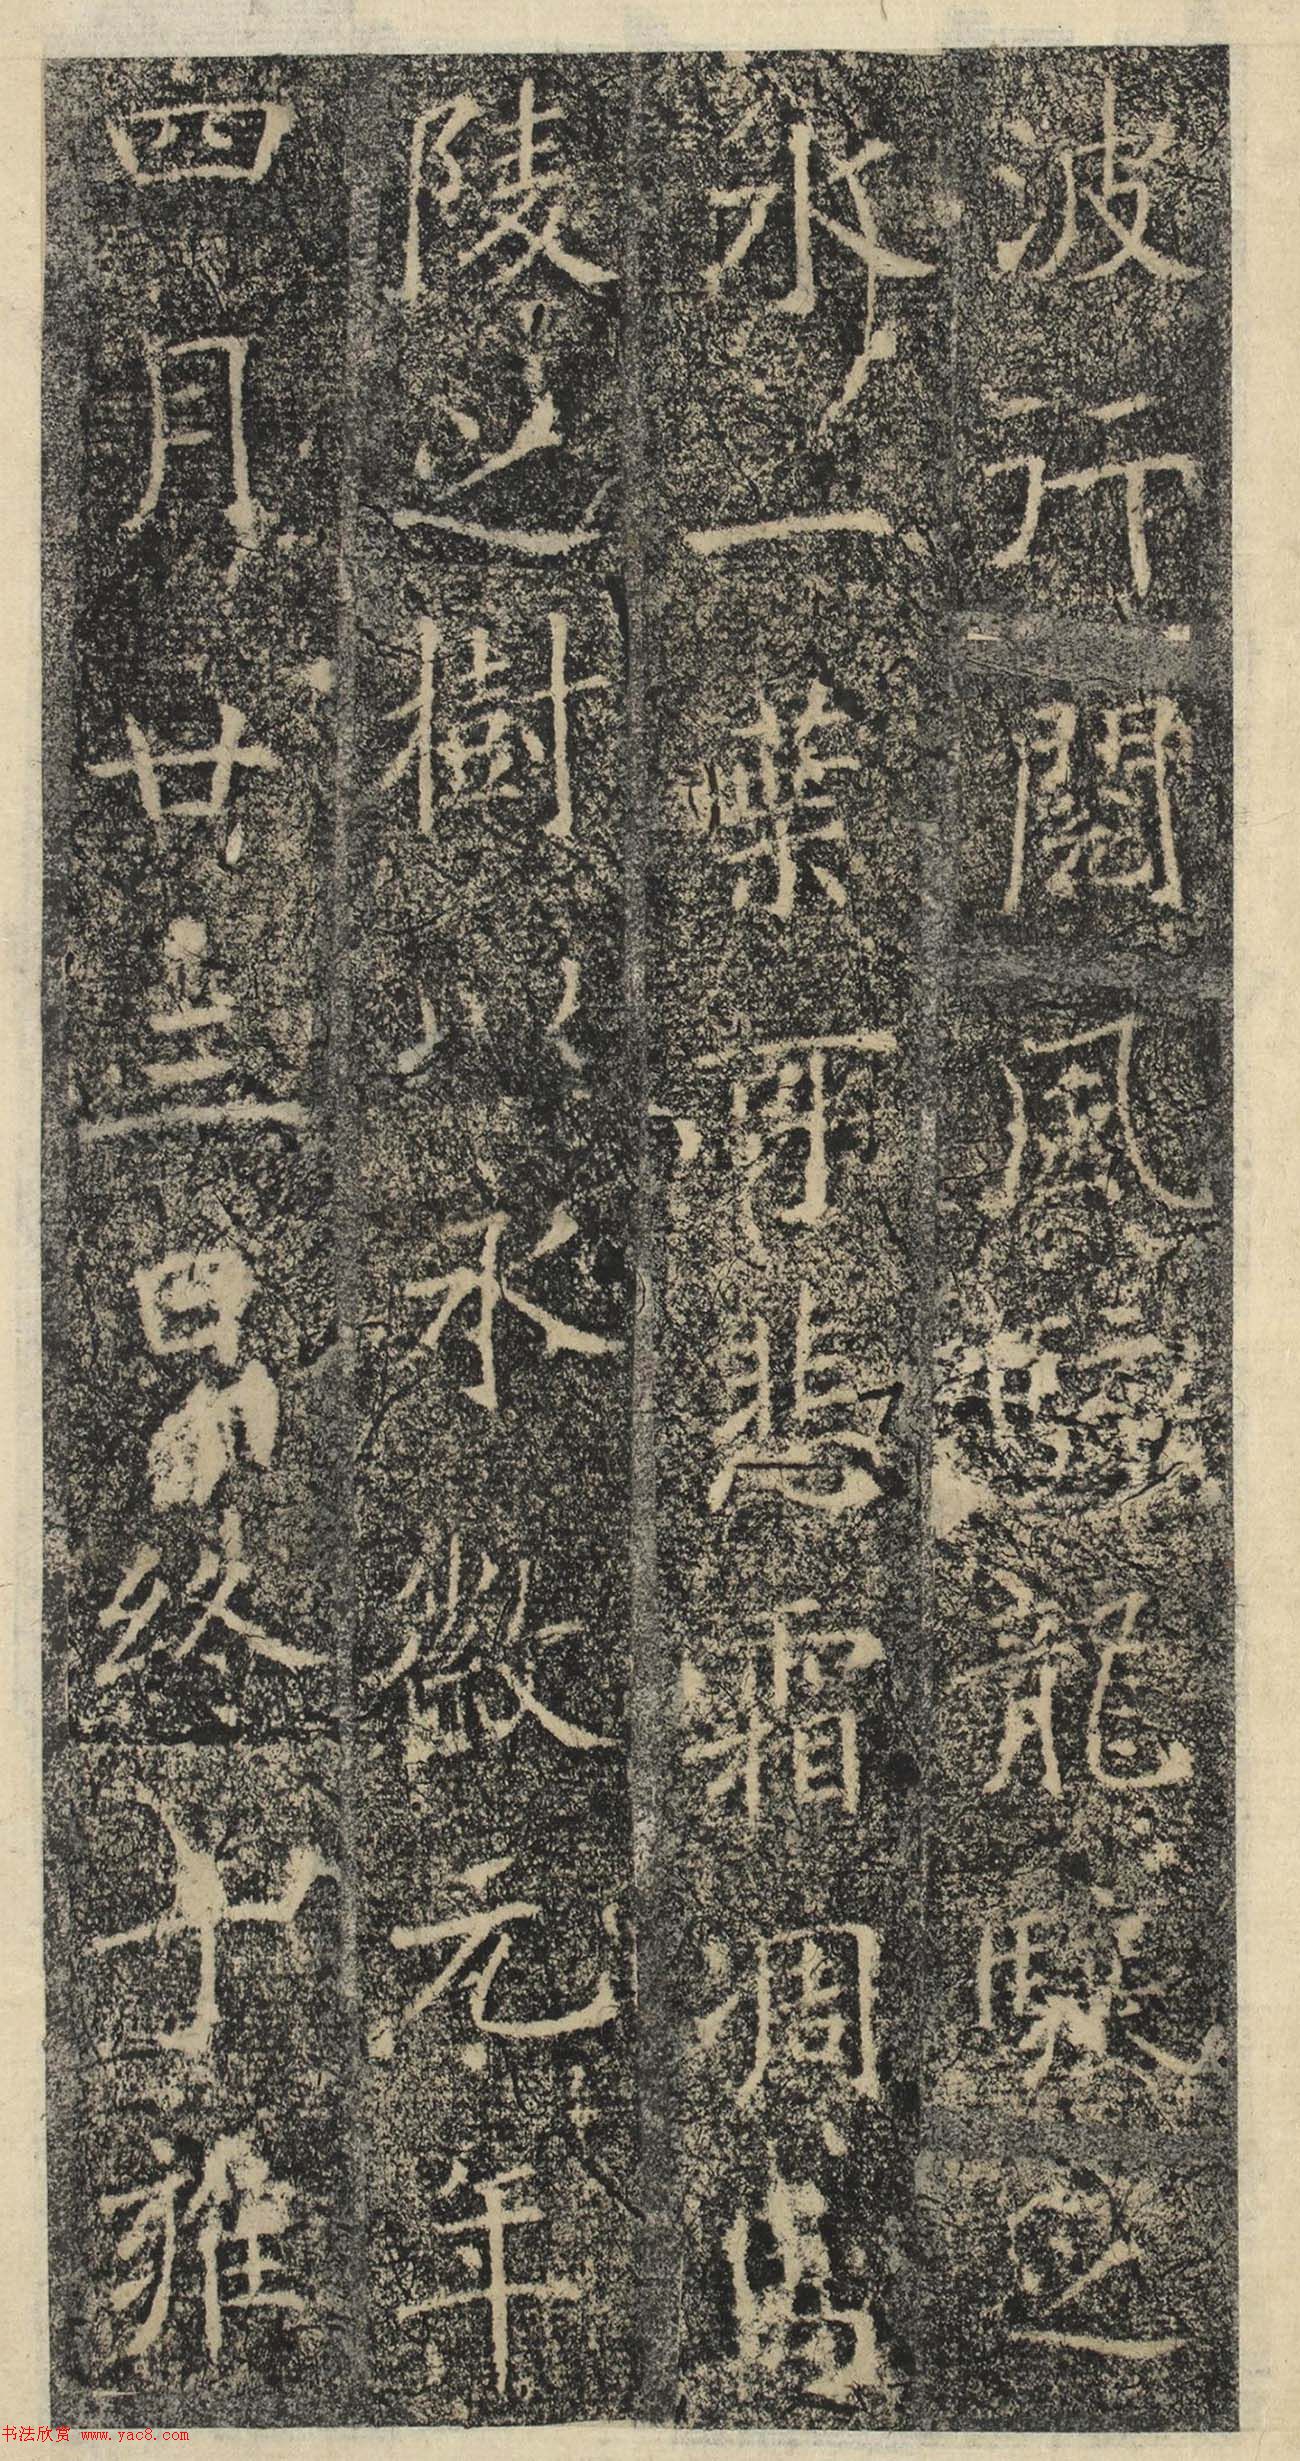 波行閱風聽龍驥之
水一葉可悲霜凋馬
陵之樹以永徽元年
四月廿三日終于雍
书法欣赏 www.yac8.com